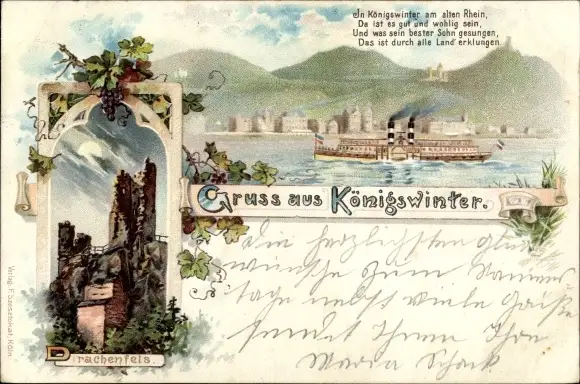 In Königswinter am alten Rhein,
Da ist es gut und wohlig sein,
Und was sein bester Sohn gesungen,
Das ist durch alle Land' erklungen.
Gruss aus Königswinter.
Die herzlichsten Glück
wünsche zum Namens
tage nebst viele Grüße
sendet Ihnen Ihre
Maria Schack
Drachenfels.
Verlag F. Szesztokat, Köln.